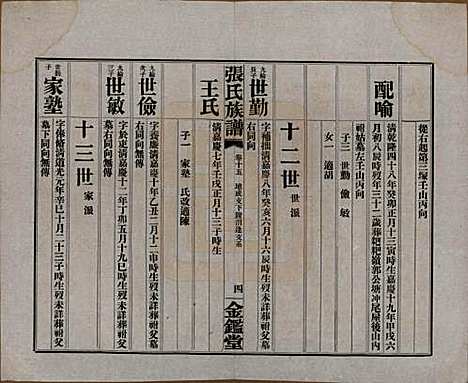 從右起第三塚壬山丙向
配喻
清乾隆四十八年癸卯正月十三寅時生清嘉慶十九年甲戌六
月初八辰時歿年三十二歲葬粑粑嶺郭公塘冲尾屋後山內
祖姑墓左壬山丙向
子三 世勤 儉 敏
女一 適胡
十二世 世派
九綸長子 世勤
字補拙清嘉慶八年癸亥六月十六辰時生歿未詳葬祖父墓
右同向
王氏
清嘉慶七年壬戌正月十三子時生
子一 家塾 氏改適陳
張氏族譜 卷十五 四 金鑑堂
九綸次子 世儉
字於慶清嘉慶十年乙丑二月十二申時生歿未詳葬祖父墓
右同向無傳
九綸三子 世敏
字於東清嘉慶十二年丁卯五月十九巳時生歿未詳葬祖父
墓左同向無傳
十三世 家派
世勤子 家塾
字佩脩清道光元年辛巳十月二十三子時生歿未詳葬祖父
墓下同向無傳